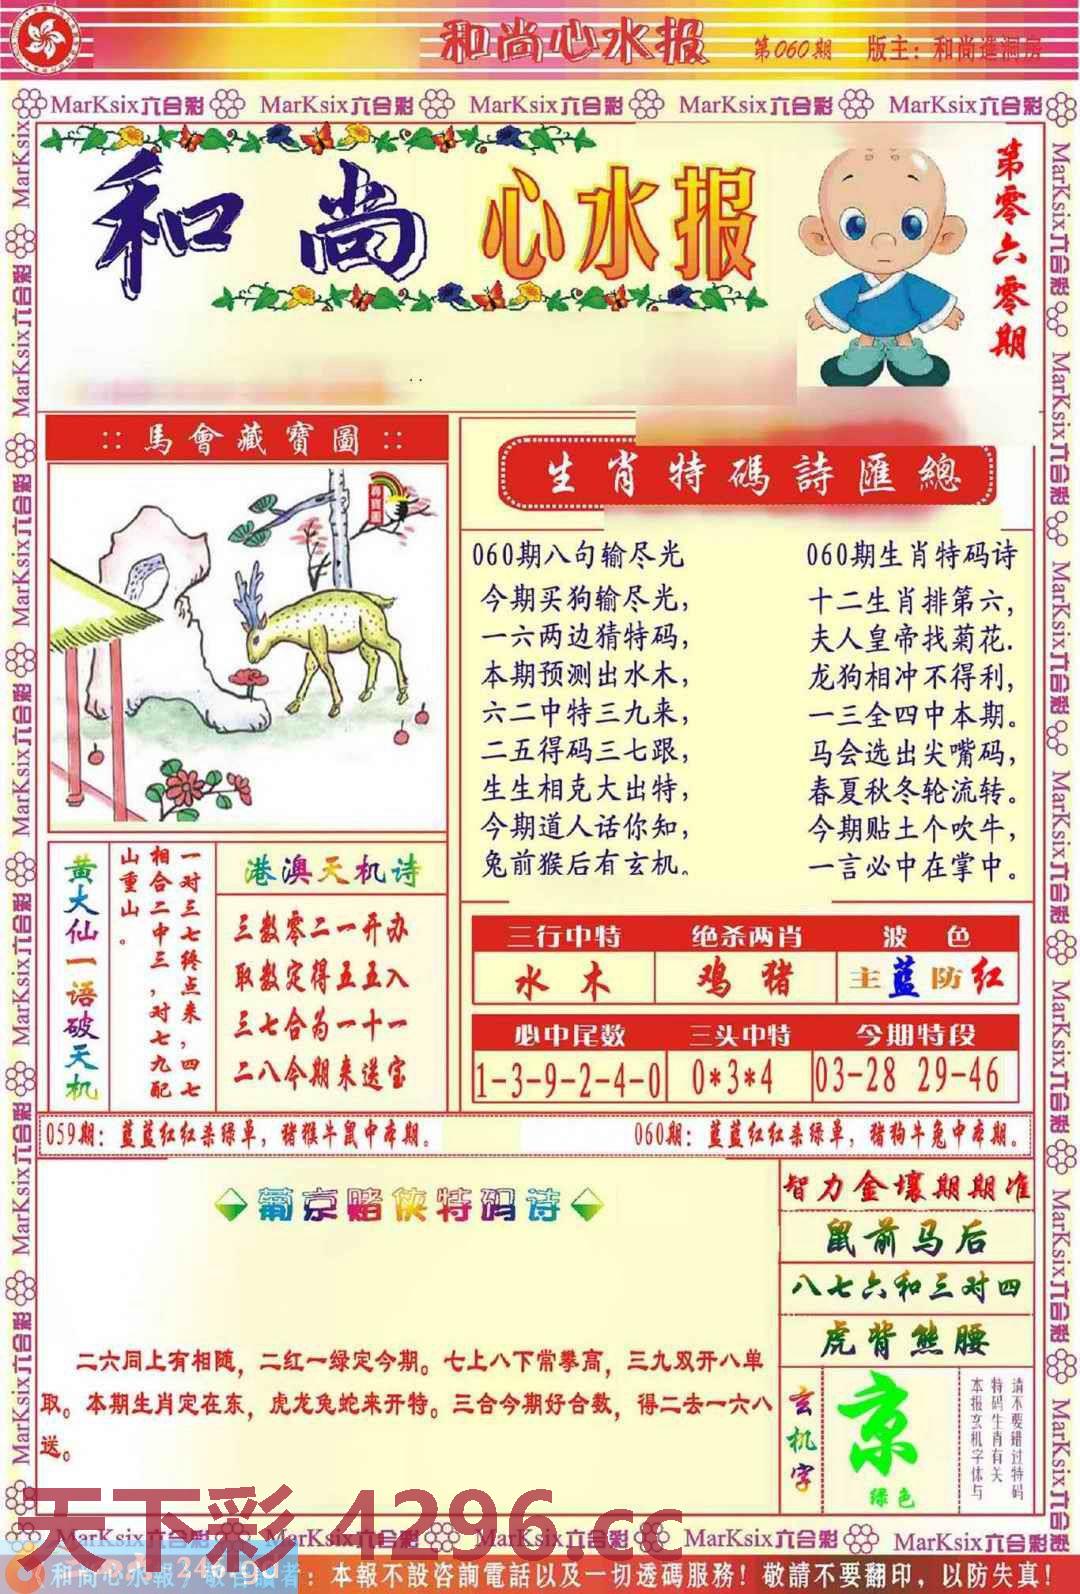 和尚心水报
第060期
版主：和尚進洞房
MarKsix六合彩 MarKsix六合彩 MarKsix六合彩 MarKsix六合彩 MarKsix六合彩
和尚心水报
第零六零期
馬會藏寶圖
尋寶圖
生肖特碼詩匯總
060期八句输尽光
今期买狗输尽光，
一六两边猜特码，
本期预测出水木，
六二中特三九来，
二五得码三七跟，
生生相克大出特，
今期道人话你知，
兔前猴后有玄机。
060期生肖特码诗
十二生肖排第六，
夫人皇帝找菊花.
龙狗相冲不得利，
一三全四中本期。
马会选出尖嘴码，
春夏秋冬轮流转。
今期贴土个吹牛，
一言必中在掌中。
黄大仙一语破天机
一对三七终点来，四七
相合二中三，对七九配
山重山。
港澳天机诗
三数零二一开办
取数定得五五入
三七合为一十一
二八今期来送宝
三行中特 绝杀两肖 波色
水木 鸡猪 主蓝防红
必中尾数 三头中特 今期特段
1-3-9-2-4-0 0*3*4 03-28 29-46
059期：蓝蓝红红杀绿单，猪猴牛鼠中本期。
060期：蓝蓝红红杀绿单，猪狗牛兔中本期。
葡京赌侠特码诗
二六同上有相随，二红一绿定今期。七上八下常攀高，三九双开八单
取。本期生肖定在东，虎龙兔蛇来开特。三合今期好合数，得二去一六八
送。
智力金壤期期准
鼠前马后
八七六和三对四
虎背熊腰
玄机字
京
绿色
请不要错过特码
特码生肖有关
本报玄机字体与
天下彩.4296.cc
MarKsix六合彩 MarKsix六合彩 MarKsix六合彩 MarKsix六合彩 MarKsix六合彩
和尚心水報，敬告讀者：本報不設咨詢電話以及一切透碼服務！敬請不要翻印，以防失真！